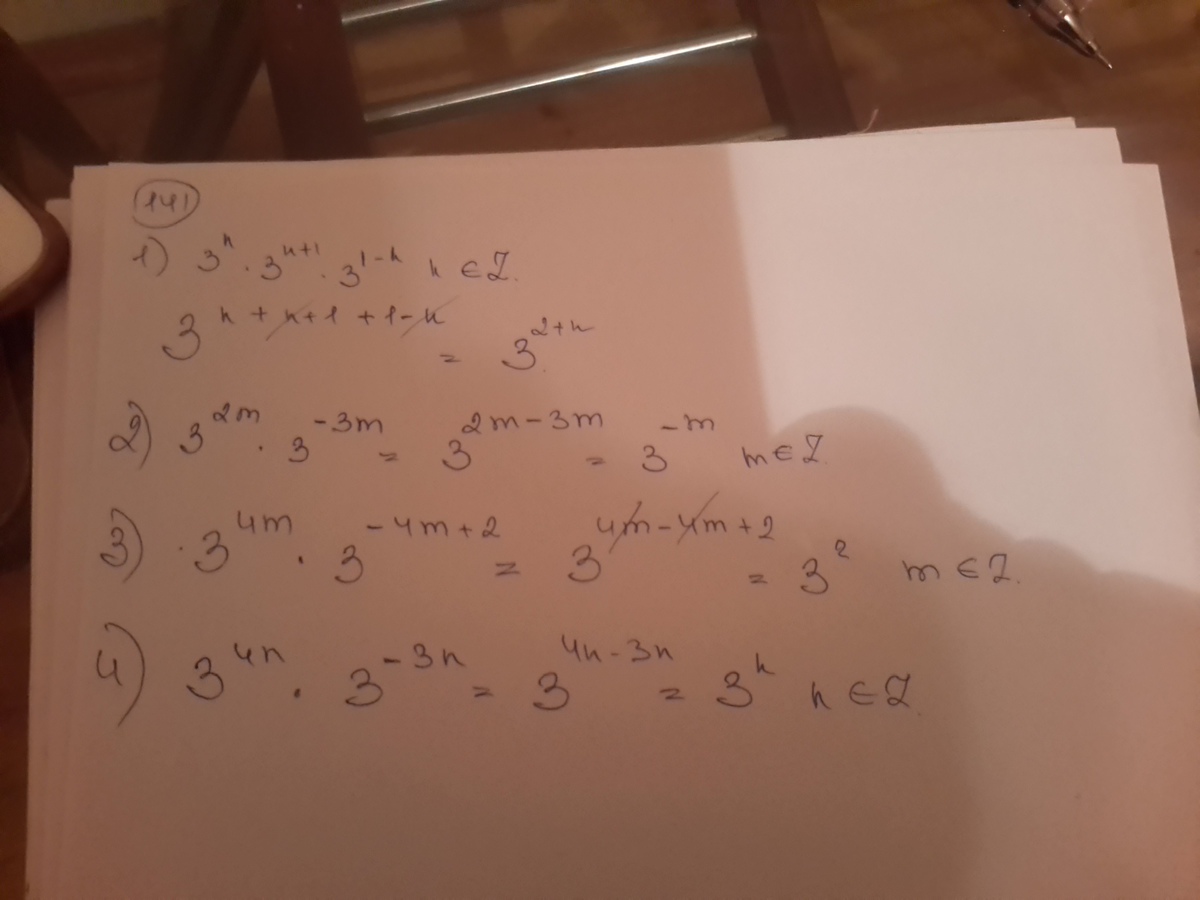 141
1) 3^n · 3^{n+1} · 3^{1-n} n ∈ Z.
3^{n + n+1 + 1-n} = 3^{2+n}
2) 3^{2m} · 3^{-3m} = 3^{2m-3m} = 3^{-m} m ∈ Z.
3) · 3^{4m} · 3^{-4m+2} = 3^{4m-4m+2} = 3^2 m ∈ Z.
4) 3^{4n} · 3^{-3n} = 3^{4n-3n} = 3^n n ∈ Z.